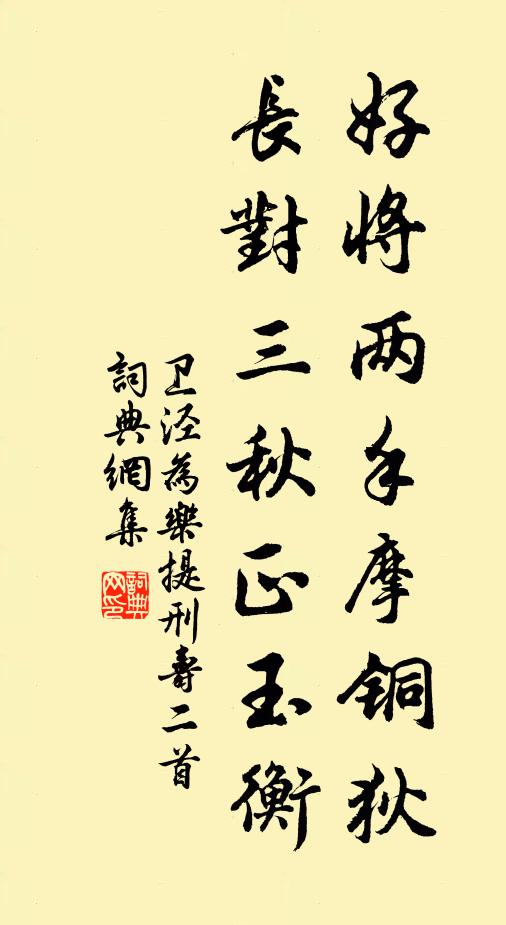 好将两手摩铜狄
長對三秋正玉衡
卫泾為樂提刑壽二首
詞典網集
詞典網印